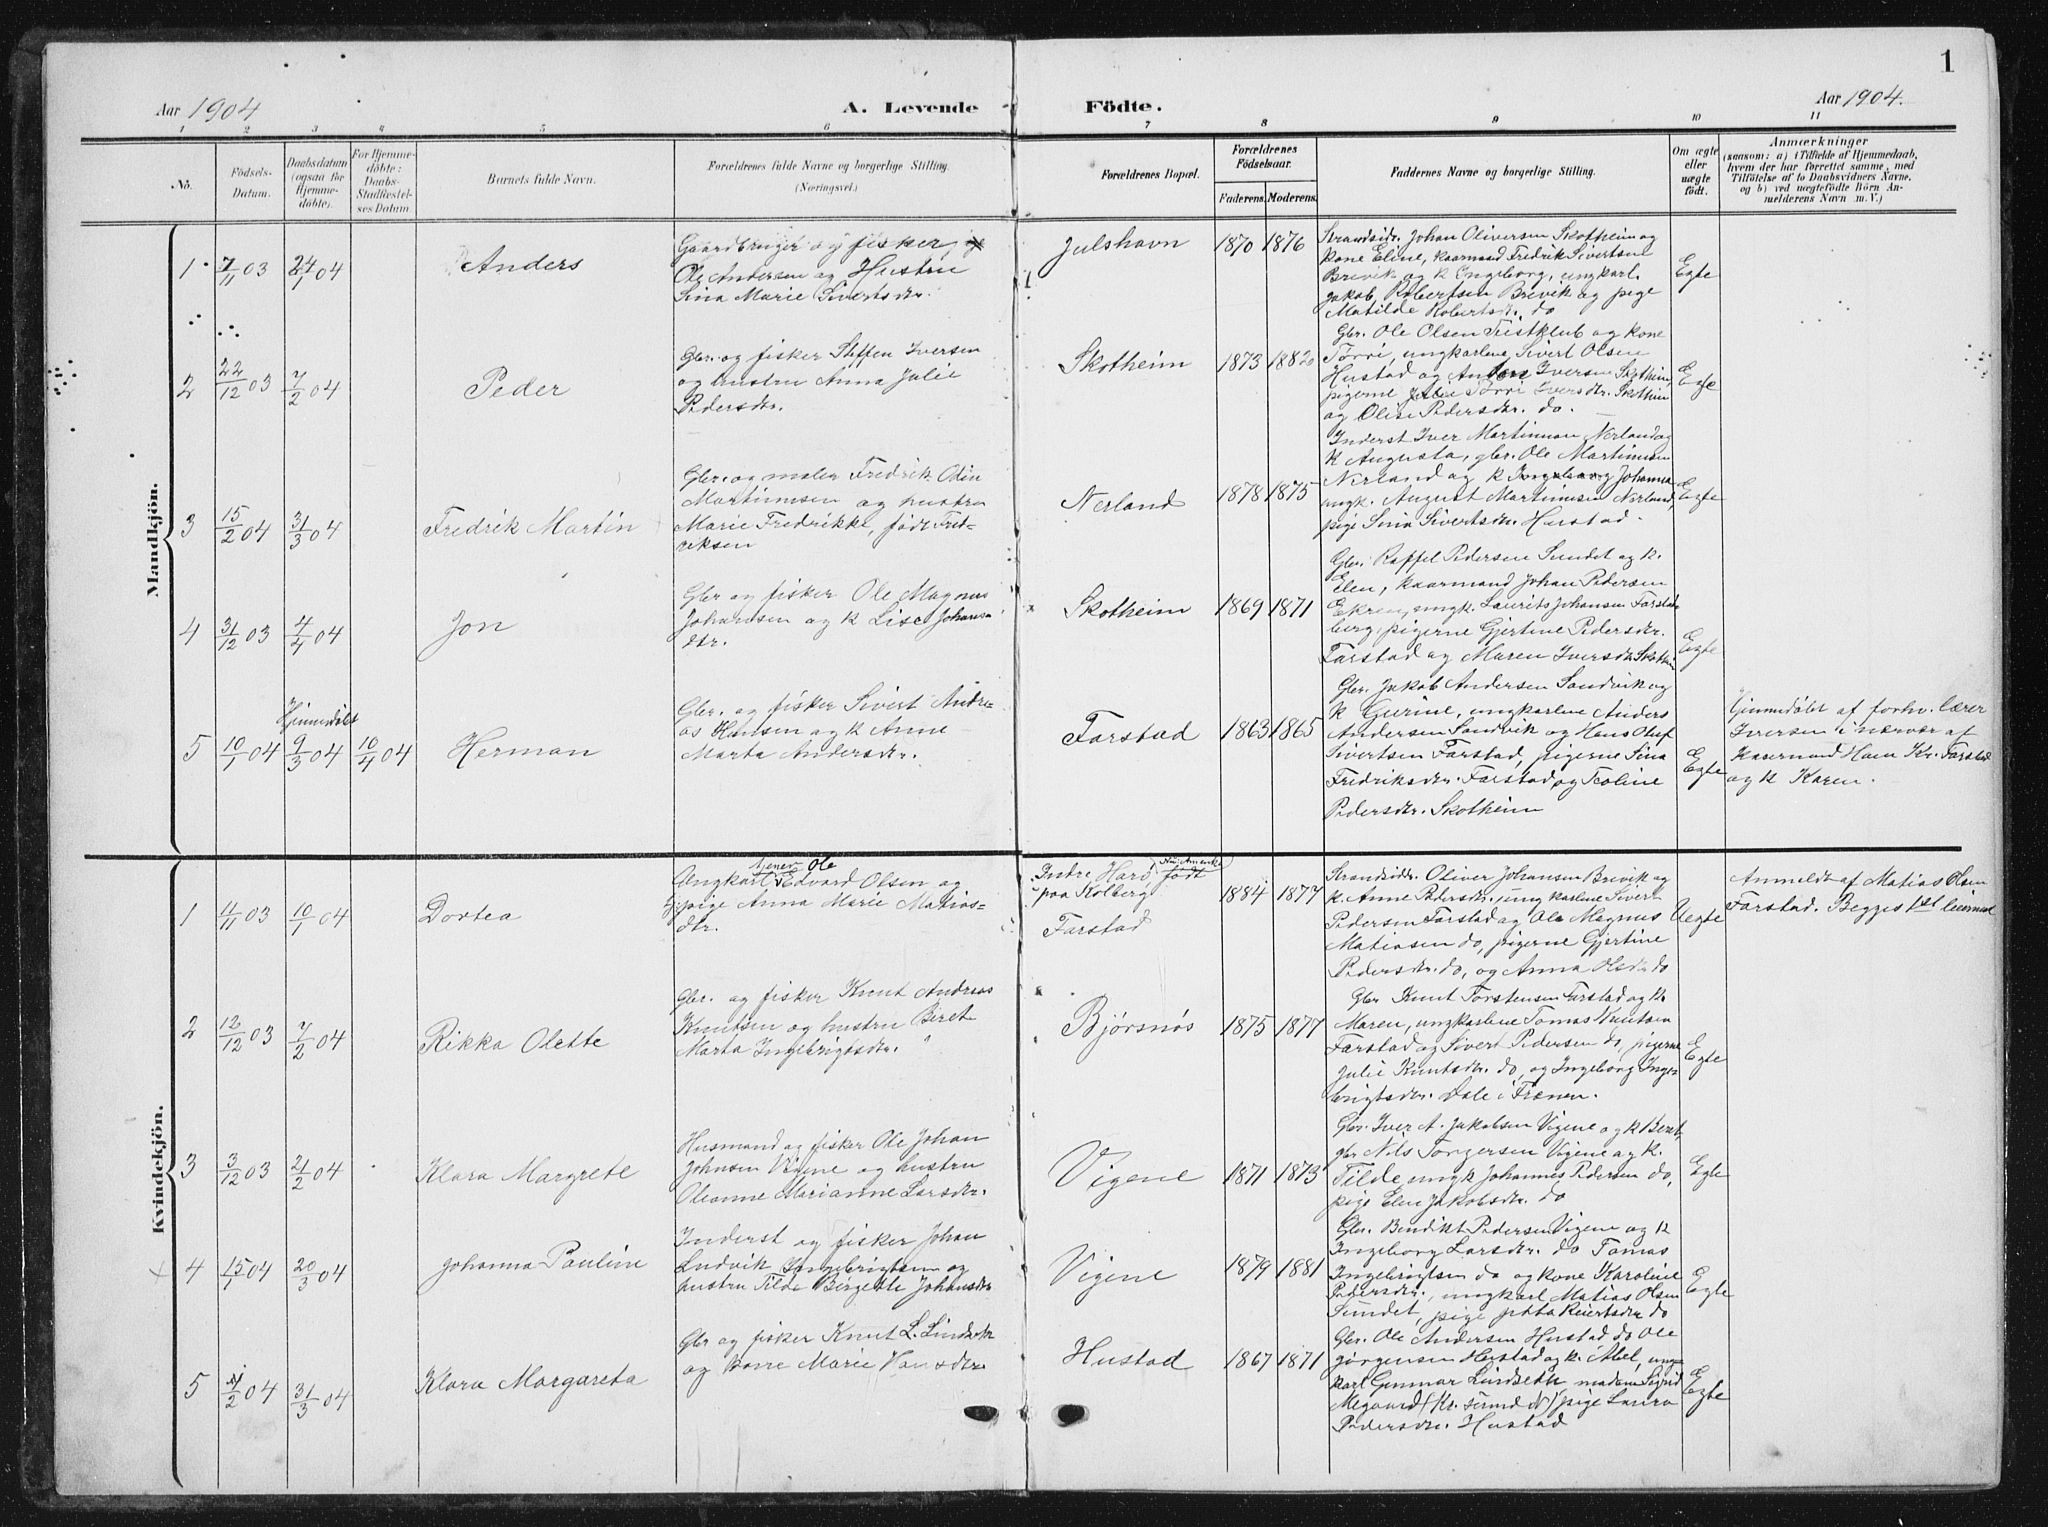 1
Aar 1904
A. Levende
Födte.
Aar 1904.
1 2 3 4 5 6 7 8 9 10 11
No.
Födsels-
Datum.
Daabsdatum
(ogsaa for
Hjemme-
döbte).
For Hjemme-
döbte:
Daabs-
Stadfæstel-
ses Datum
Barnets fulde Navn.
Forældrenes fulde Navne og borgerlige Stilling.
(Næringsvei.)
Forældrenes Bopæl.
Forældrenes
Födselsaar.
Faderens. Moderens.
Faddernes Navne og borgerlige Stilling.
Om ægte
eller
uægte
födt.
Anmærkninger
(saasom: a) i Tilfælde af Hjemmedaab,
hvem der har forrettet samme, med
Tilföielse af to Daabsvidners Navne,
og b) ved uægtefödte Börn An-
melderens Navn m. V.)
Mandkjön.
1 7/11 03 24/1 04 Anders
Gaardbruger og fisker
Ole Andersen og Hustru
Sina Marie Sivertsdtr.
Julshavn 1870 1876
Strandsidr. Johan Oliversen Skotheim og
kone Eline, kaarmand Fredrik Sivertsen
Brevik og k Engeborg, ungkarl
Jakob Robertsen Brevik og pige
Matilde Robertsdr. do
Egte
2 22/12 03 7/2 04 Peder
Gbr. og fisker Steffen Iversen
og hustru Anna Julie
Pedersdtr.
Skotheim 1873 1882
Gbr. Ole Olsen Tustklub og kone
Torri, ungkarlene Sivert Olsen
Hustad og Anders Iversen Skotheim,
pigerne Julie Torri Iversdtr. Skotheim
og Oline Pedersdtr. do.
Egte
3 15/2 04 31/3 04 Fredrik Martin
Gbr. og maler Fredrik Odin
Martinusen og hustru
Marie Fredrikke, født Fred-
riksen
Nerland 1878 1875
Inderst Iver Martinusen Nerland og
k Augusta, gbr. Ole Martinusen
Nerland og k Ingeborg Johanna
ungk. August Martinusen Nerland,
pige Sina Sivertsdtr. Hustad.
Egte
4 31/12 03 4/4 04 Jon
Gbr og fisker Ole Magnus
Johansen og k Lise Johans-
dtr.
Skotheim 1869 1871
Gbr. Raffel Pedersen Sundet og k.
Elen, kaarmand Johan Pedersen
Ekren, ungk. Laurits Johansen Farstad
berg, pigerne Gjertine Pedersdtr.
Farstad og Maren Iversdtr. Skothim
Egte
Hjemmedøbt
5 10/1 04 9/3 04 10/4 04 Herman
Gbr. og fisker Sivert Andre-
as Hansen og k Anne
Marta Andersdtr.
Farstad 1863 1865
Gbr. Jakob Andersen Sandvik og
k Gurine, ungkarlene Anders
Andersen Sandvik og Hans Oluf
Sivertsen Farstad, pigerne Sina
Fredriksdtr. Farstad, og Toline
Pedersdtr. Skotheim
Egte
Hjemmedøbt af forhv. lærer
Iversen i nærvær af
Kaarmand Hans Kr. Farstad
og k Karen.
Kvindekjön.
1 4/11 03 10/1 04 Dortea
tjener Ole
Ungkarl Edvard Olsen og
pige Anna Marie Matias-
dtr.
Indre Hard født
paa Kolberg
Farstad
1884 1877
Strandsidr. Oliver Johansen Brevik og
k. Anne Pedersdtr. ungkarlene Sivert
Pedersen Farstad og Ole Magnus
Matiasen do, pigerne Gjertine
Pedersdtr. do, og Anna Olsdtr do
Uegte
Anmeldt af Matias Olsen
Farstad. Begges 1st leiermaal
2 12/12 03 7/2 04 Rikka Olette
Gbr. og fisker Knut Andreas
Knutsen og hustru Beret
Marta Ingebrigtsdtr.
Bjørsnøs 1875 1877
Gbr Knut Torstensen Farstad og k.
Maren, ungkarlene Tomas Knutsen
Farstad og Sivert Pedersen do, pigerne
Julie Knutsdtr. do, og Ingeborg Inge-
brigtsdtr. Dale i Frænen.
Egte
3 3/12 03 21/2 04 Klara Margrete
Husmand og fisker Ole Johan
Johnsen Vigene og hustru
Oleanne Marianne Larsdtr.
Vigene 1871 1873
Gbr. Iver A. Jakobsen Vigene og k Beret,
gbr Nils Torgersen Vigene og k.
Tilde, ungk Johannes Pedersen do,
pige Elen Jakobsdtr. do
Egte
4 15/1 04 20/3 04 Johanna Pauline
Inderst og fisker Johan
Ludvik Ingebrigtsen og
hustru Tilde Birgette Johansdtr
Vigene 1879 1881
Gbr. Bendikt Pedersen Vigene og k
Ingeborg Larsdtr. do Tomas
Ingebrigtsen do og kone Karoline
Pedersdtr., ungkarl Matias Olsen
Sundet, pige Reiertsdtr do
Egte
5 2 04 31/3 04 Klara Margareta
Gbr og fisker Knut L. Lindseth
og kone Marie Hansdtr.
Hustad 1867 1871
Gbr. Ole Andersen Hustad do Ole
Jørgensen Hustad og k. Mel, ung-
karl Gunnar Lindseth madam Sigrid
Megaard (Kr. sund N) pige Laura
Pedersdtr. Hustad
Egte